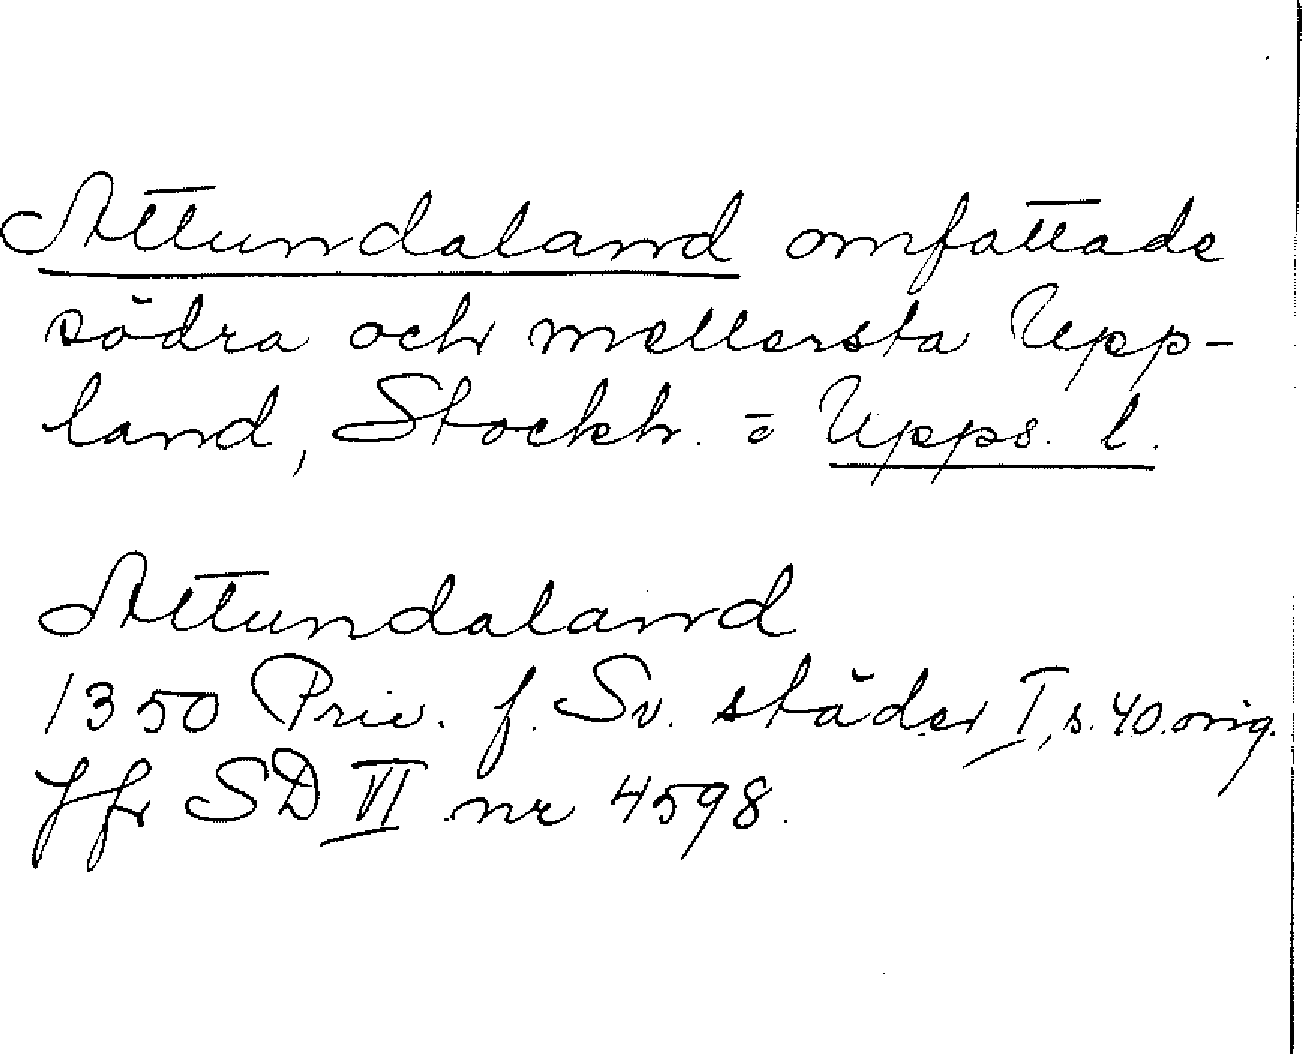 Attundaland omfattade
södra och mellersta Upp-
land, Stockh. o Upps. l.
Attundaland
1350 Priv. f. Sv. städer I, s. 40. orig.
Jfr SD VI nr 4598.